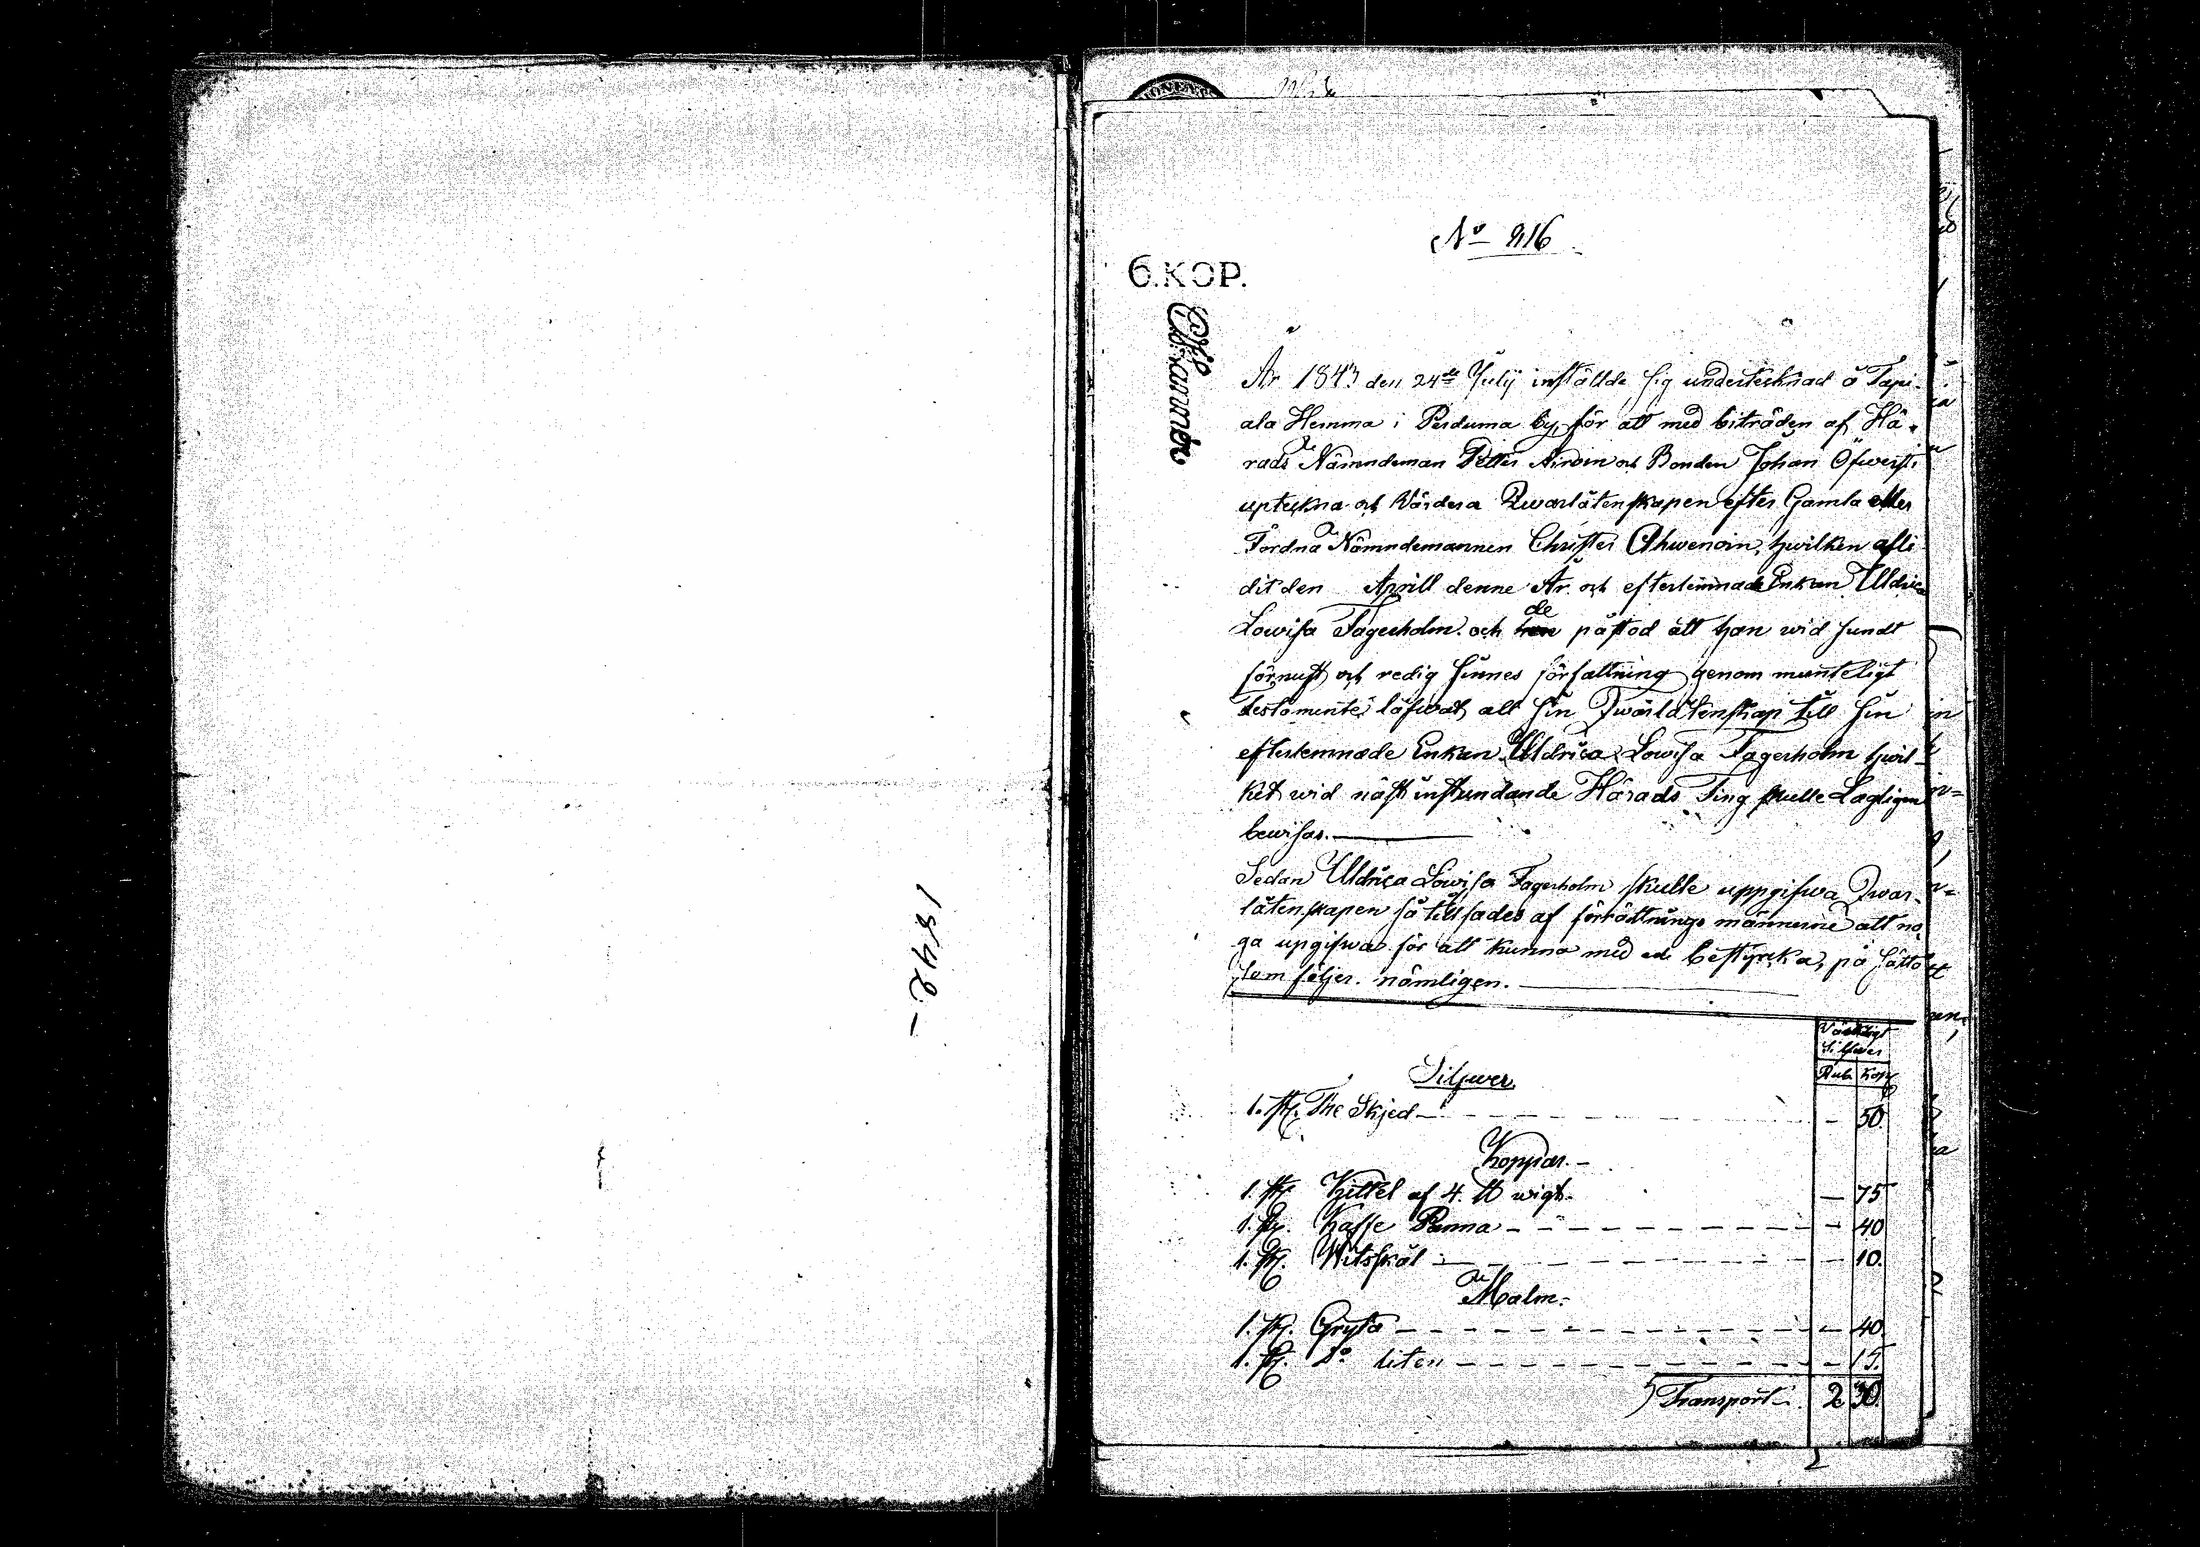 1842.-
No 216
6.KOP.
År 1843 den 24de Julÿ instälde sig undertecknad å Tapi-
ala Hemma i Perduma by, för att med biträden af Hä-
rads Nämndeman Petter Airoin och Bonden Johan Öfwersti
uptekna och Värdera Qwarlåtenskapen efter Gamla eller
Fordna Nämndemannen Christer Ahwenoin, hwilken afli
dit den Aprill denne År. och efterlemnade Enkan Uldrica
Lowisa Fagerholm. och de påstod att han wid sundt
förnuft och redig sinnes författning genom munteligt
testamente låfwat all sin Qwarlåtenskap till sin
efterlemnade Enkan Uldrica Lowisa Fagerholm hwil-
ket wid näst instundande Härads Ting skulle Lagligen
bewisas.
Sedan Uldrica Lowisa Fagerholm skulle uppgifwa Qwar-
låtenskapen så tillsades af förrättnings männerne att no-
ga upgifwa för att kunna med ed bestyrcka, på sätt
som följer. nämligen.
Silfwer
Rub. Kop
Silfwer.
1. st. The Skjed - - 50.
Koppar.-
1. st. Kittel af 4. ℔ wigt - - 75
1. st. Kaffe Panna - - 40
1. st. Witsskål - - 10.
Malm.-
1. st. Gryta - - 40.
1. st. Do liten - - 15.
Transport 2 30.